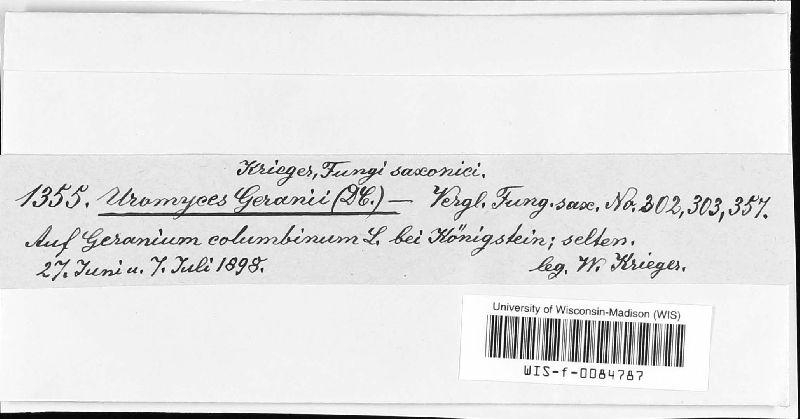 Krieger, Fungi saxonici.
1355. Uromyces Geranii (DC.) — Vergl. Fung. sax. No. 302, 303, 357.
Auf Geranium columbinum L. bei Königstein; selten.
27. Juni u. 7. Juli 1898. leg. W. Krieger.
University of Wisconsin-Madison (WIS)
WIS-f-0084787